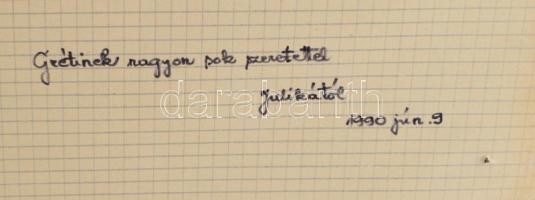 Grétinek nagyon sok szeretettel
Julikától
darabanth
1990 jún. 9